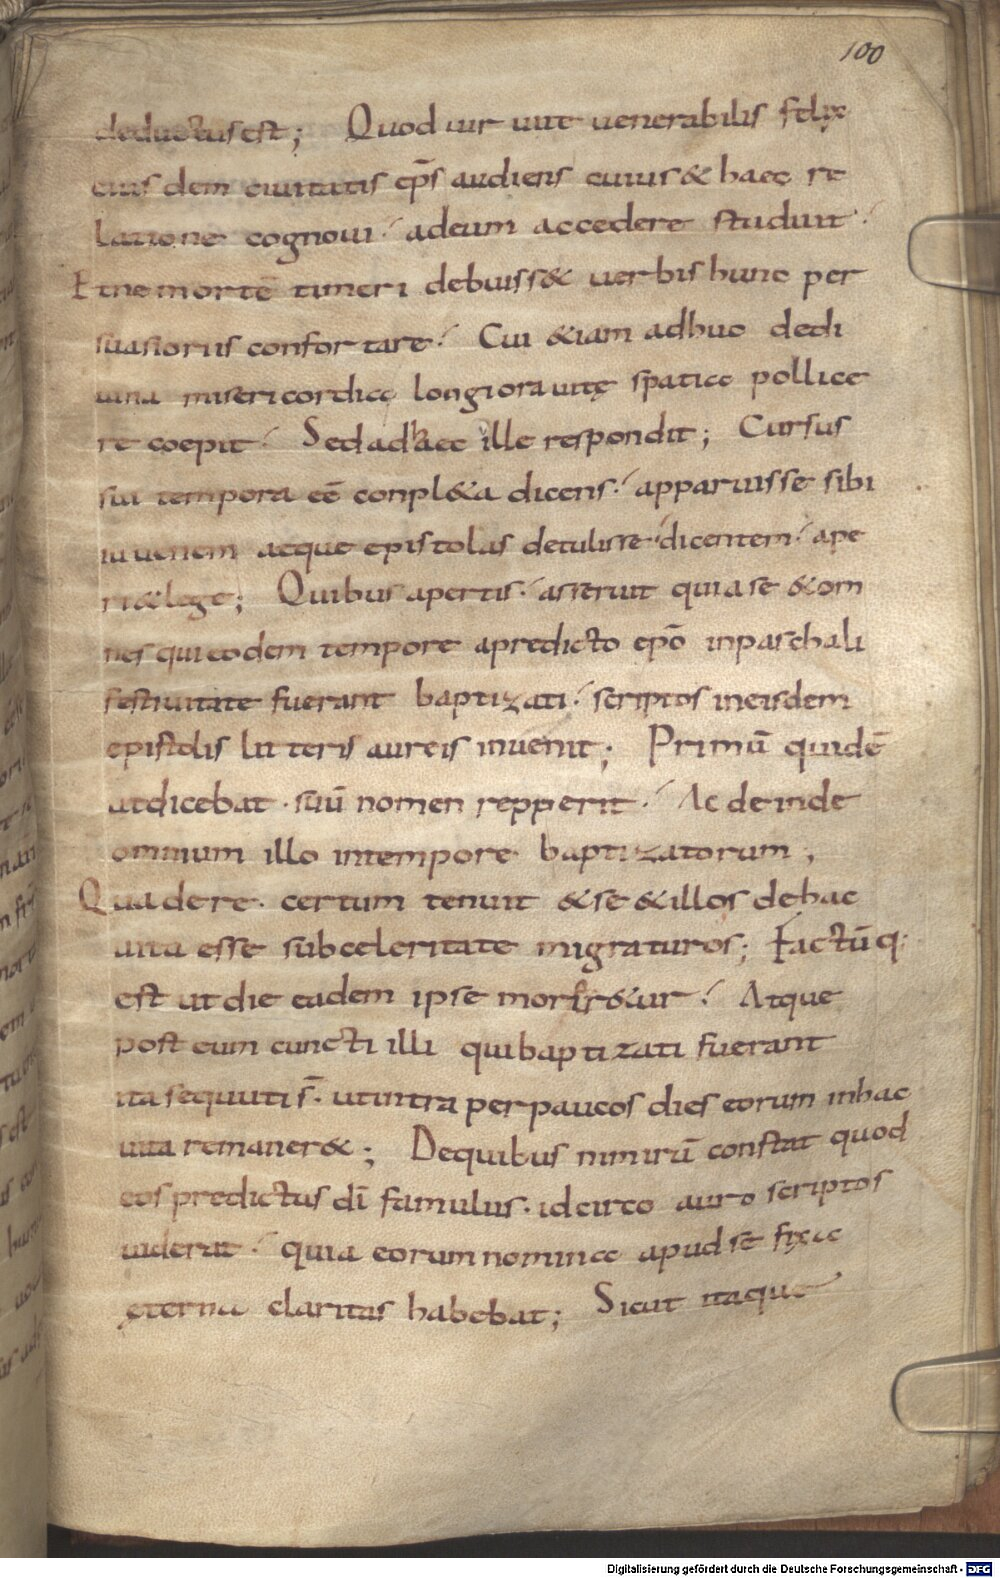 100
deductus est; Quod uir uite uenerabilis felix
eius dem ciuitatis ep̄s audiens cuius & haec re
latione cognoui. adeum accedere studuit.
Et ne mortē timeri debuiss& uerbis hunc per
suasoriis confortare. Cui &iam adhuc de di
uina misericordia longiora uitę spatia pollice
re coepit. Sed ad haec ille respondit; Cursus
sui tempora eē conpl&a dicens. apparuisse sibi
iuuenem atque epistolas detulisse dicentem. ape
ri & lege; Quibus apertis. asseruit quia se & om
nes qui eodem tempore a predicto ep̄o in paschali
festiuitate fuerant baptizati. scriptos in eisdem
epistolis litteris aureis inuenit; Primū quidē
ut dicebat. suū nomen repperit. Ac deinde
omnium illo in tempore baptizatorum;
Qua de re. certum tenuit & se & illos de hac
uita esse sub celeritate migraturos; Factūq;
est ut die eadem ipse morir&ur. Atque
post eum cuncti illi qui baptizati fuerant
ita sequuti s̄. ut intra per paucos dies eorum in hac
uita remaner&; De quibus nimirū constat quod
eos predictus dī famulus. idcirco auro scriptos
uiderat. quia eorum nomina apud se fixa
ęterna claritas habebat; Sicut itaque
Digitalisierung gefördert durch die Deutsche Forschungsgemeinschaft - DFG